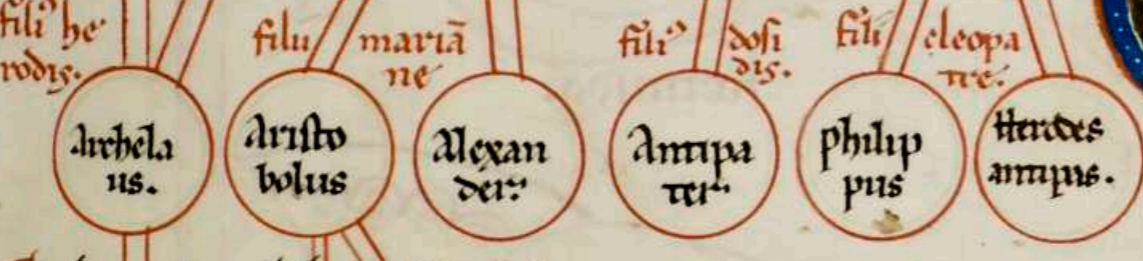 fili⁹ he
rodis.
filii mariā
ne
fili⁹ dosi
dis.
filii cleopa
tre.
Archela
us.
Aristo
bolus
Alexan
der.
Antipa
ter.
Philip
pus
Herodes
antipas.